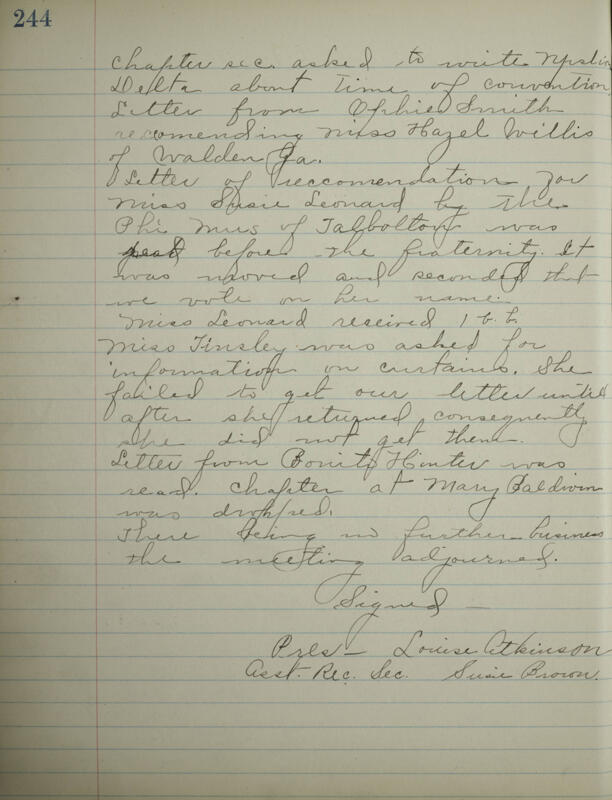 244
chapter sec. asked to write Upsilon
Delta about time of convention,
Letter from Ophie Smith
recomending Miss Hazel Willis
of Walden Ga.
Letter of reccomendation for
Miss Susie Leonard by the
Phi Mus of Talbolton was
before the fraternity. It
was moved and seconded that
we vote on her name.
Miss Leonard received 1 b. b.
Miss Tinsley was asked for
information on curtains. She
failed to get our letter until
after she returned consequently
she did not get them.
Letter from Hinter was
read. Chapter at Mary Baldwin
was dropped.
There being no further business
the meeting adjourned.
Signed —
Pres — Louise Atkinson
Asst. Rec. Sec. Susie Brown.